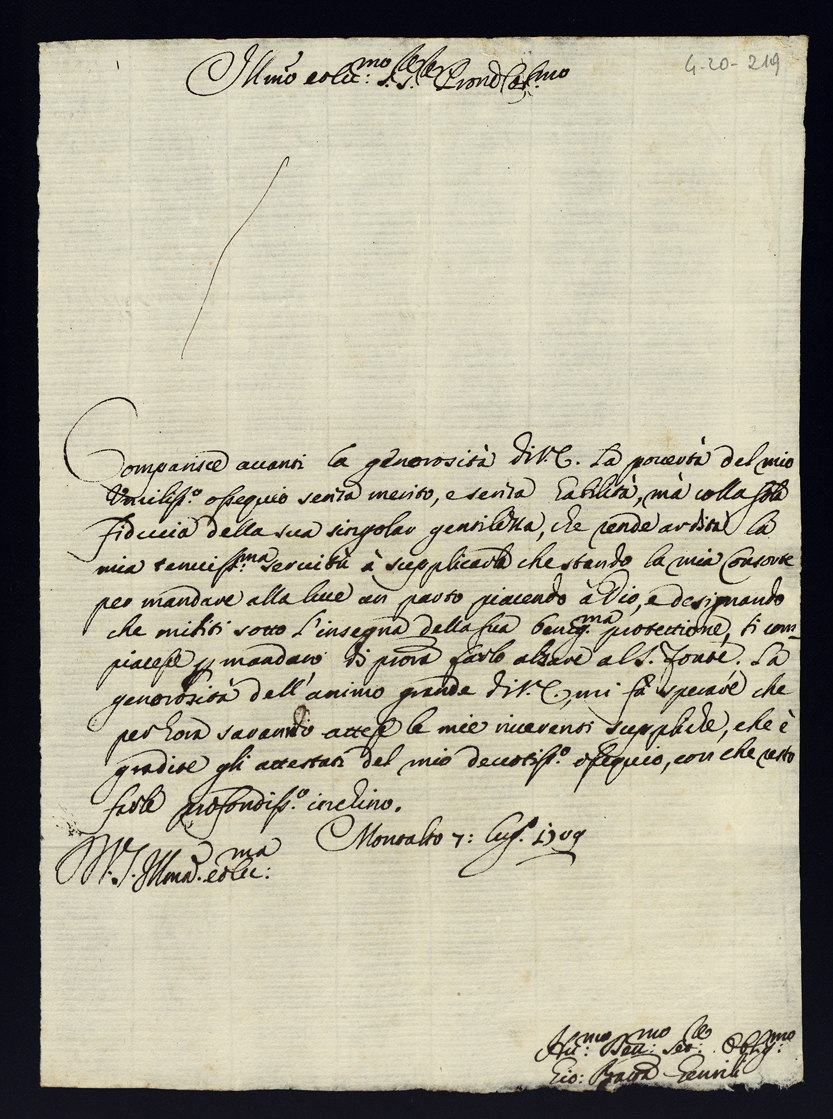 4-20-219
Illmo ecc:mo Sig.re Sig.re Prond Col.mo
Comparisce avanti la generosità di V.E. la povertà del mio
Umiliss.o ossequio senza merito, e senza habilità, mà colla sola
fiducia della sua singolar gentilezza, che rende ardita la
mia tenuiss.ma servitù à supplicarla che stando la mia Consorte
per mandare alla luce un parto piacendo à Dio, e designando
che militi sotto l'insegna della sua benig.ma protettione, si com=
piacesse mandare di farlo alzare al S. Fonte. La
generosità dell'animo grande di V.E., mi fà sperare che
per hora saranno attese le mie riverenti suppliche, che è
gradite gli attestati del mio devotiss.o ossequio, con che resto
farle profondiss.o inchino.
Montalto 7: lug.o 1709
V.S. Illma. ecc:ma
Hu:mo Dev:mo Ser:re Oblig:mo
Gio: Batta Gentili